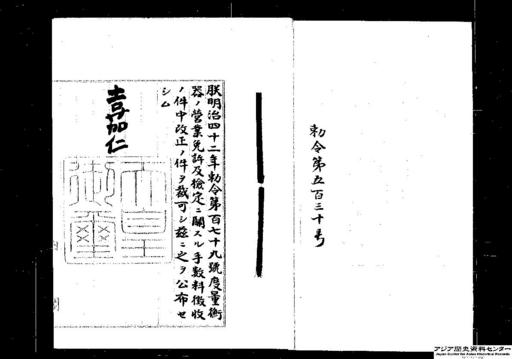 勅令第五百三十号
朕明治四十二年勅令第百七十九號度量衡
器ノ營業免許及檢定ニ關スル手數料徴收
ノ件中改正ノ件ヲ裁可シ茲ニ之ヲ公布セ
シム
嘉仁
天皇
御璽
アジア歴史資料センター
Japan Center for Asian Historical Records